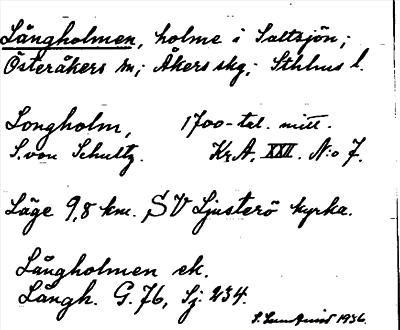 Långholmen, holme i Saltsjön;
Österåkers sn; Åkers skg; Sthlms l.
Longholm, 1700-tal. mitt.
S. von Schultz. Kr.A. XXII. N:o 7.
Läge 9,8 km. SV Ljusterö kyrka.
Långholmen ek.
Långh. G. 76, Sj. 234.
S. 1936.